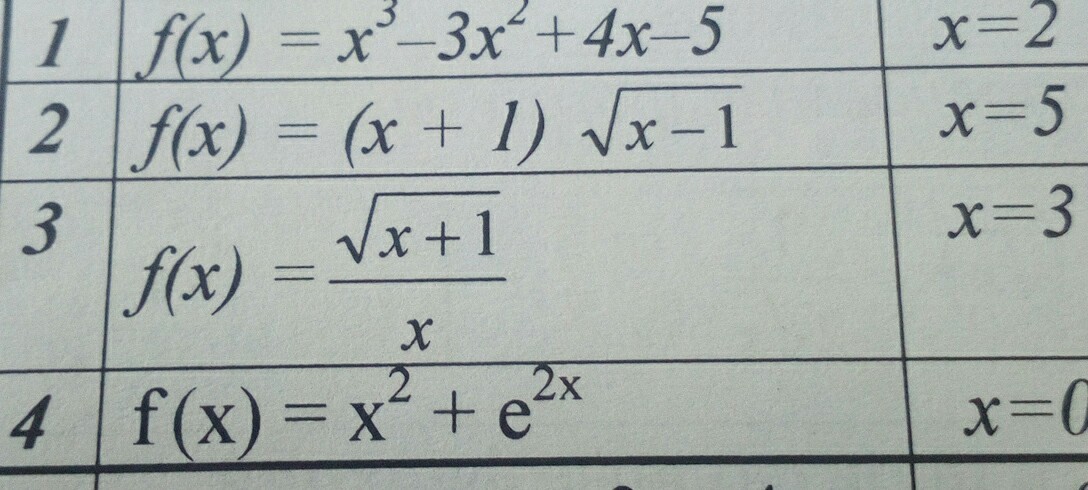 1 f(x) = x³–3x²+4x–5 x=2
2 f(x) = (x + 1) √(x–1) x=5
3 f(x) = √(x+1) / x x=3
4 f(x) = x² + e²ˣ x=0